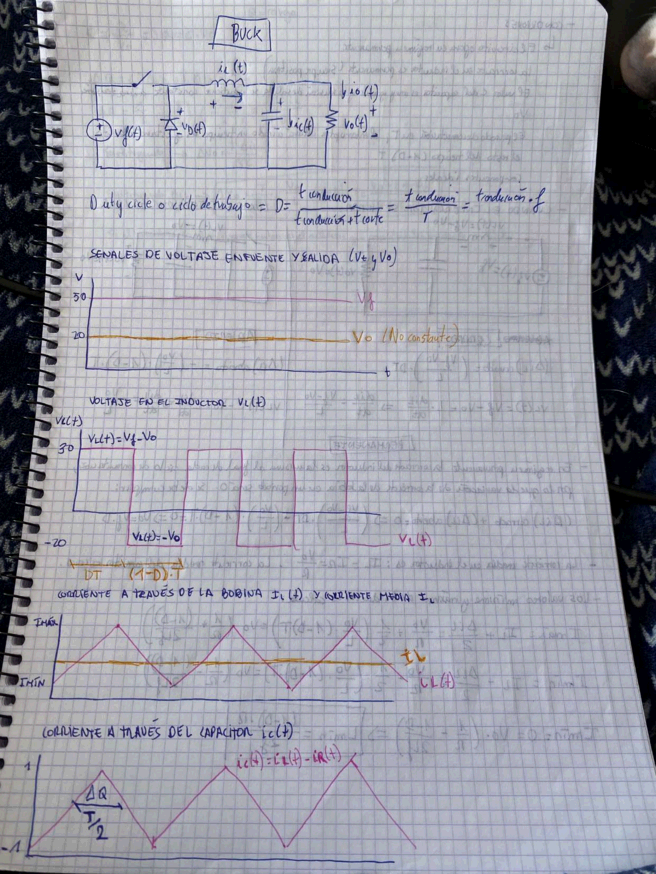 BUCK
iL(t)
+ -
+ vD(t) -
vf(t)
+ ic(t)
io(t)
vo(t) + -
Duty cicle o ciclo de trabajo = D = t conducción / t conducción + t corte = t conducción / T = t conducción · f
SEÑALES DE VOLTAJE EN FUENTE Y SALIDA (Vf y Vo)
V
50 Vf
20 Vo (No constante)
t
VOLTAJE EN EL INDUCTOR VL(t)
VL(t)
30 VL(t) = Vf - Vo
-20 VL(t) = -Vo VL(t)
DT (1-D)·T
CORRIENTE A TRAVÉS DE LA BOBINA IL(t) Y CORRIENTE MEDIA IL
IMÁX
IL
IMÍN iL(t)
CORRIENTE A TRAVÉS DEL CAPACITOR ic(t)
1 ic(t) = iL(t) - iR(t)
ΔQ
T/2
-1